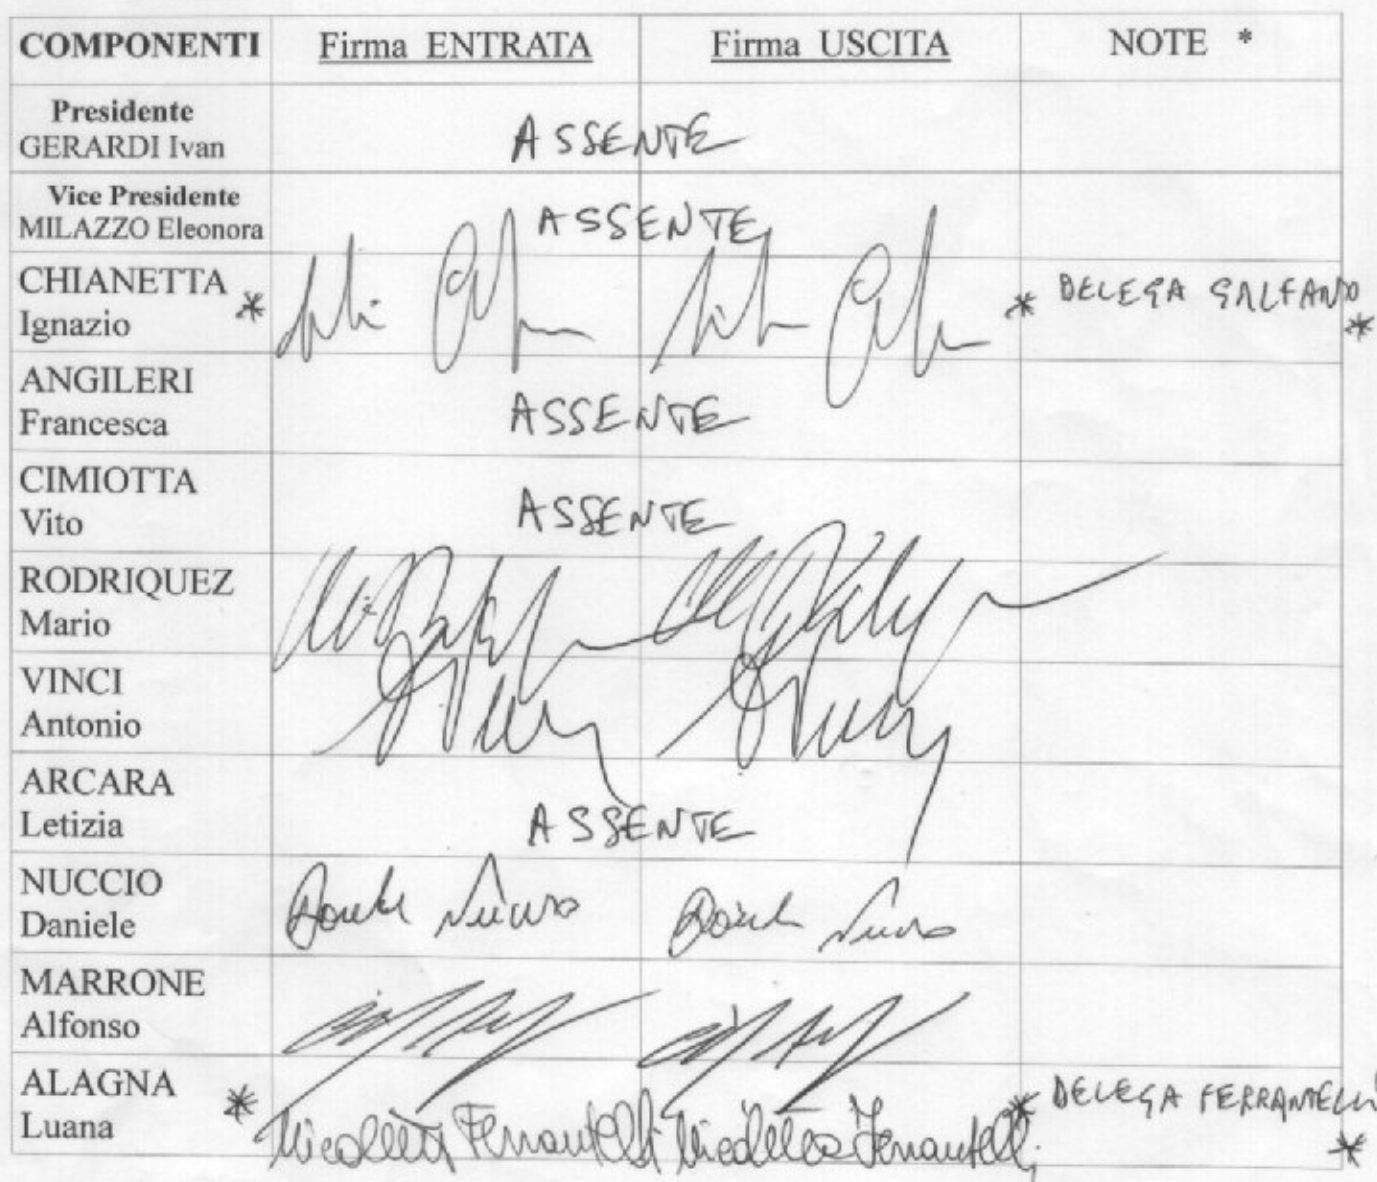 COMPONENTI Firma ENTRATA Firma USCITA NOTE *
Presidente
GERARDI Ivan ASSENTE
Vice Presidente
MILAZZO Eleonora ASSENTE
CHIANETTA * * DELEGA GALFANO *
Ignazio
ANGILERI
Francesca ASSENTE
CIMIOTTA
Vito ASSENTE
RODRIQUEZ
Mario
VINCI
Antonio
ARCARA
Letizia ASSENTE
NUCCIO
Daniele Nuccio
MARRONE
Alfonso
ALAGNA * * DELEGA FERRANTELLI *
Luana Nicoletta Ferrantelli Nicoletta Ferrantelli